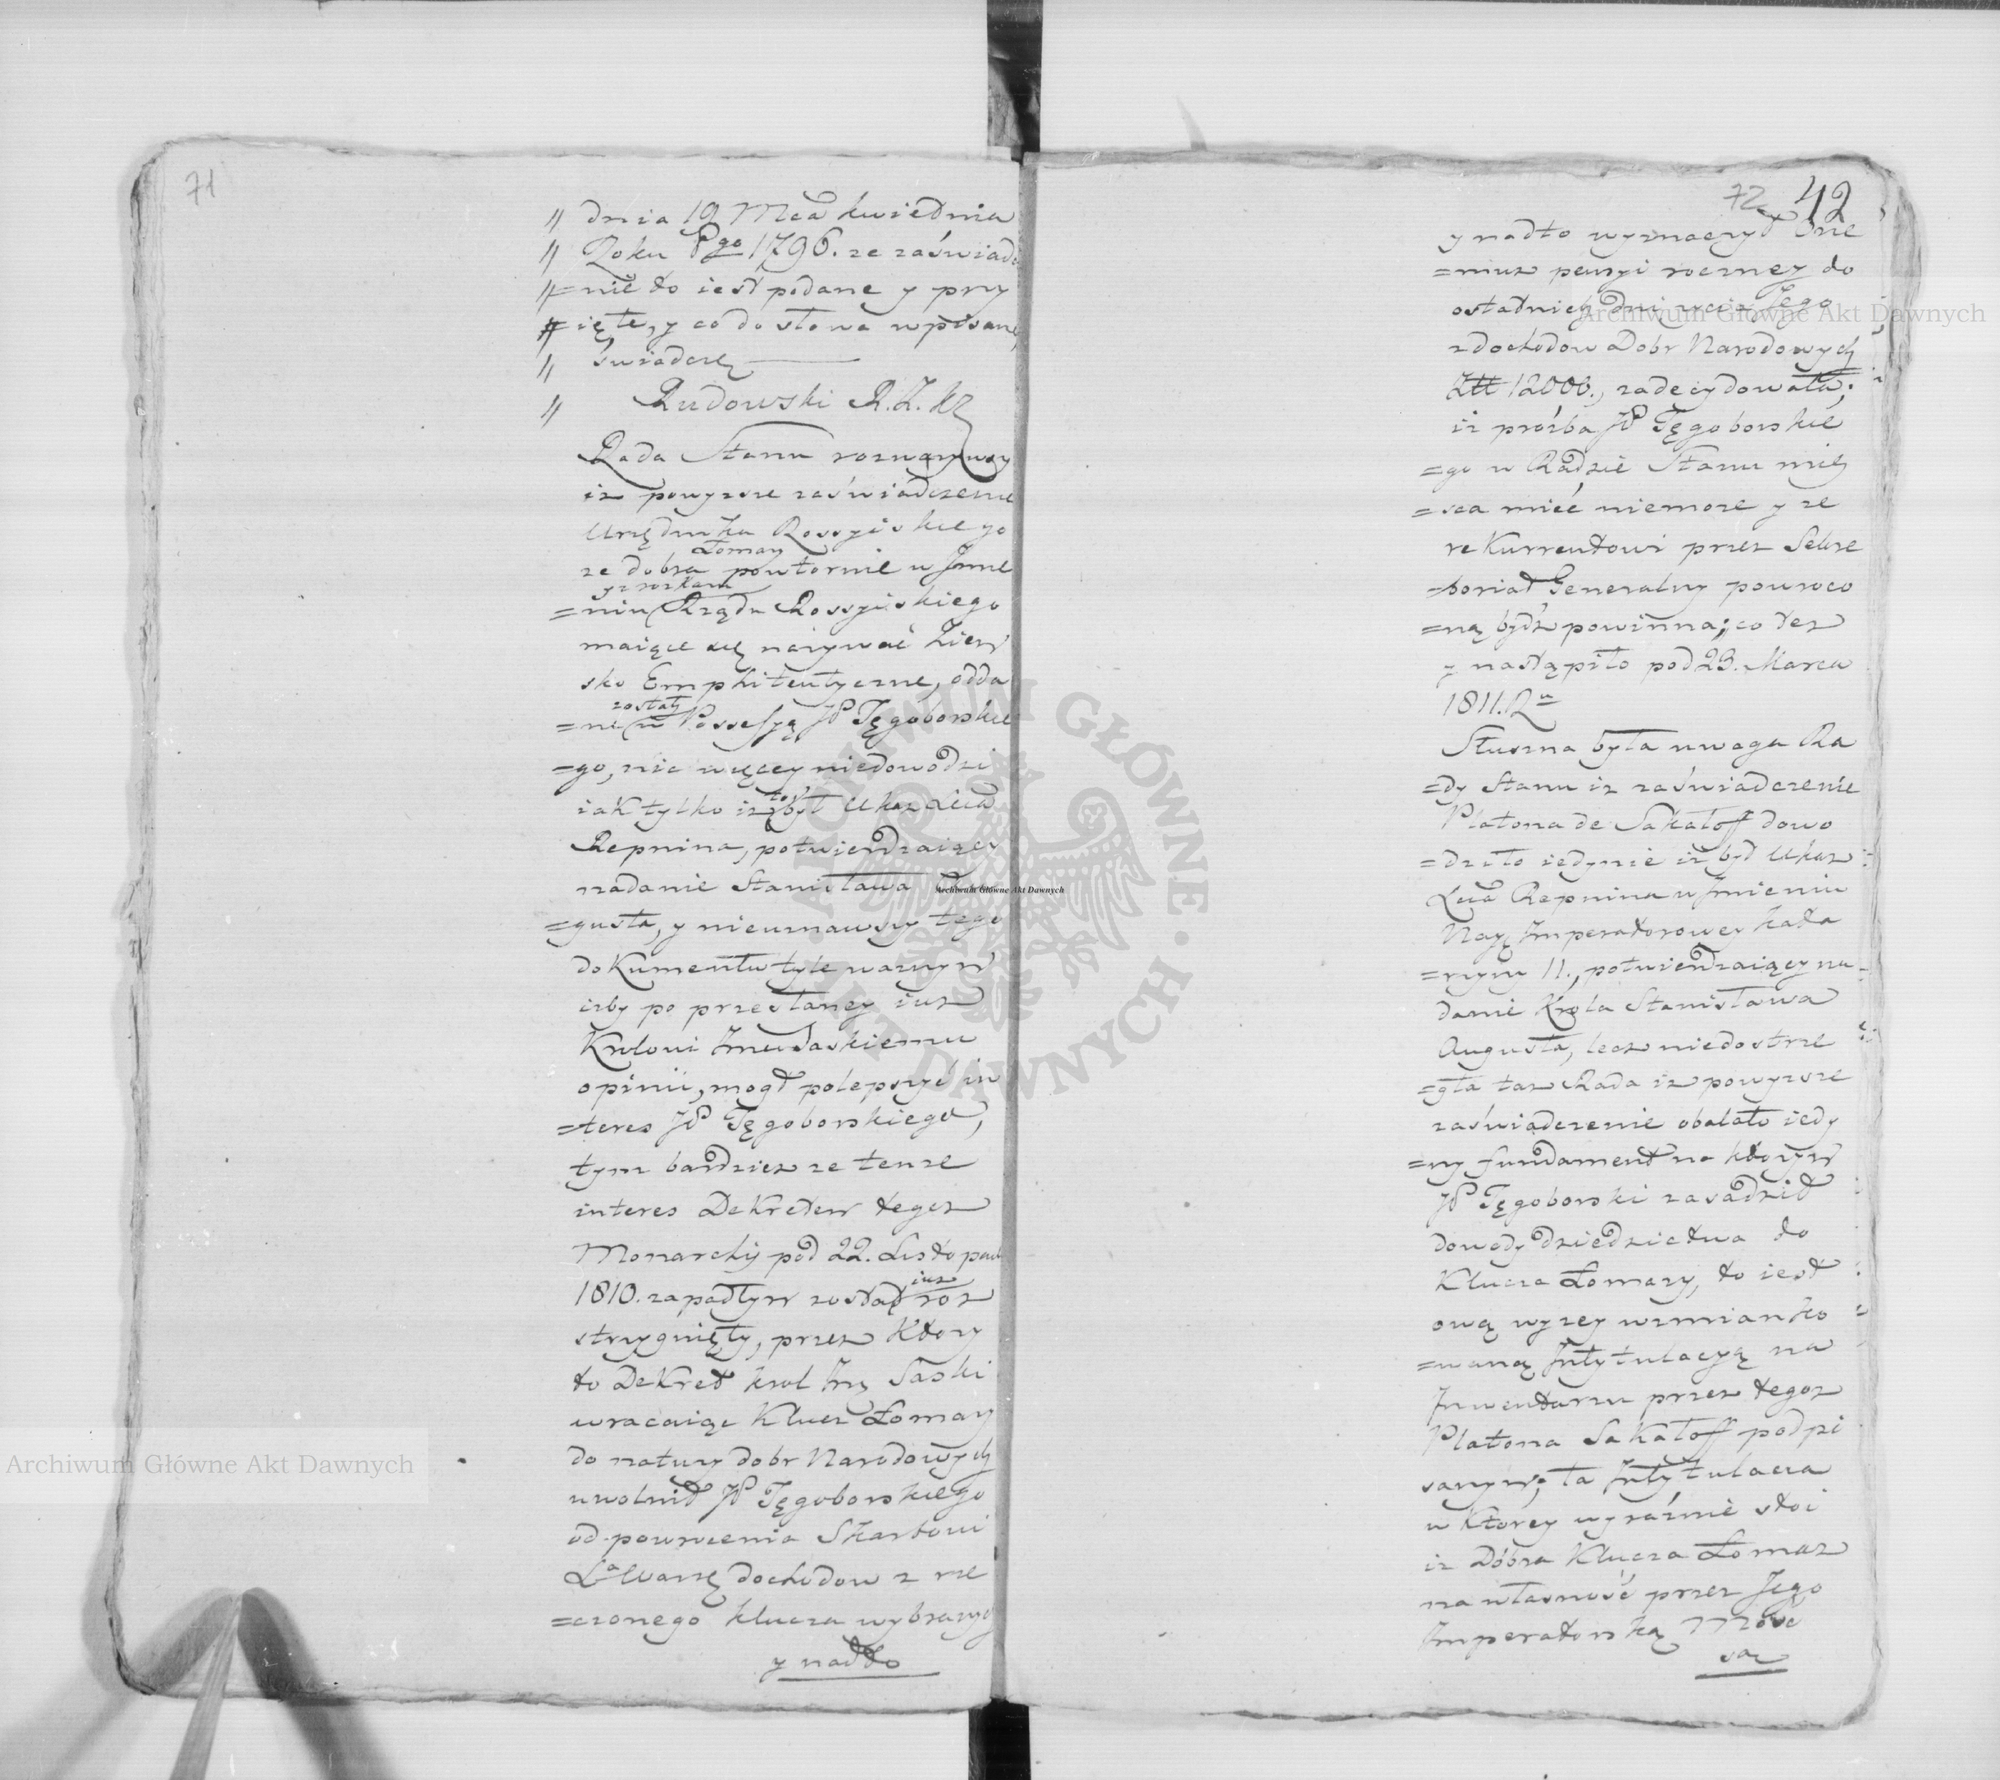 71
" dnia 19 Mca kwietnia
" Roku Pgo 1796. ze zaświad
"=nie to iest podane y przy
"=ięte, y co do słowa wpisane,
" świadczę
" Rudowski R. Z.
Rada Stanu rozważywszy
iż powyższe zaświadczenie
Urzędnika Rossyiskiego
Łomazy
że dobra powtornie w Imie
y z rozkazu
=niu Rządu Rossyiskiego
maiące się nazywać Ziem
sko Emphiteutyczne, odda
zostały
=ne w Possessyą JP Tęgoborskie
=go, nic więcey niedowodzi
iak tylko iż był Ukaz Xcia
Repnina, potwierdzaiący
nadanie Stanisława Au
=gusta, y nieuznawszy tego
dokumentu tyle ważnym
iżby po przesłaney iuż
Krolowi Jmu Saskiemu
opinii, mogł polepszyć in
=teres JP Tęgoborskiego,
tym bardziey ze tenże
interes Dekretem tegoż
Monarchy pod 22. Listopad
iuż
1810. zapadłym został roz
strzygnięty, przez Ktory
to Dekret krol Jmć Saski
wracaiąc Klucz Łomazy
do natury dobr Narodowych
uwolnił JP Tęgoborskiego
od powrocenia Skarbowi
dochodow z rze
=czonego klucza wybranych
y nadto
72 42
y nadto wyznaczył One
=muż pensyi roczney do
ostatnich dni życia Jego
z dochodow Dobr Narodowych
Złł 12000., zadecydowała;
iż prośba JP Tęgoborskie
=go w Radzie Stanu miey
=sca mieć niemoże y że
rekurrentowi przez Sekre
=toriat Generalny powroco
=ną bydź powinna; co też
y nastąpiło pod 23. Marca
1811. Ru
Słuszna była uwaga Ra
=dy Stanu iż zaświadczenie
Platona de Sakatoff dowo
=dziło iedynie iż był Ukaz
Xcia Repnina w Imieniu
Nayś Imperatorowey Kata
=rzyny II., potwierdzaiący na
danie Krola Stanisława
Augusta, lecz niedostrze
=gła taż Rada iż powyższe
zaświadczenie obalało iedy
=ny fundament na ktorym
JP Tęgoborski zasadził
dowody dziedzictwa do
Klucza Łomazy, to iest
ową wyżey wzmianko
=waną Intytulacyą na
Inwentarzu przez tegoż
Platona Sakatoff podpi
sanym; ta Intytulacya
w Ktorey wyraźnie stoi
iż Dobra Klucza Łomaz
na własność przez Jego
Imperatorską Mość
są
Archiwum Główne Akt Dawnych
Archiwum Główne Akt Dawnych
Archiwum Główne Akt Dawnych
ARCHIWUM GŁÓWNE · AKT DAWNYCH ·